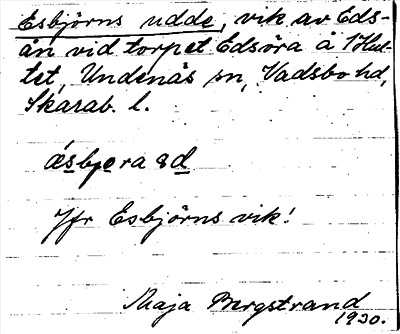 Esbjörns udde, vik av Eds-
ån vid torpet Edsöra å
tet, Undenäs sn, Vadsbo hd,
Skarab. l.
Jfr Esbjörns vik!
Maja Bergstrand
1930.